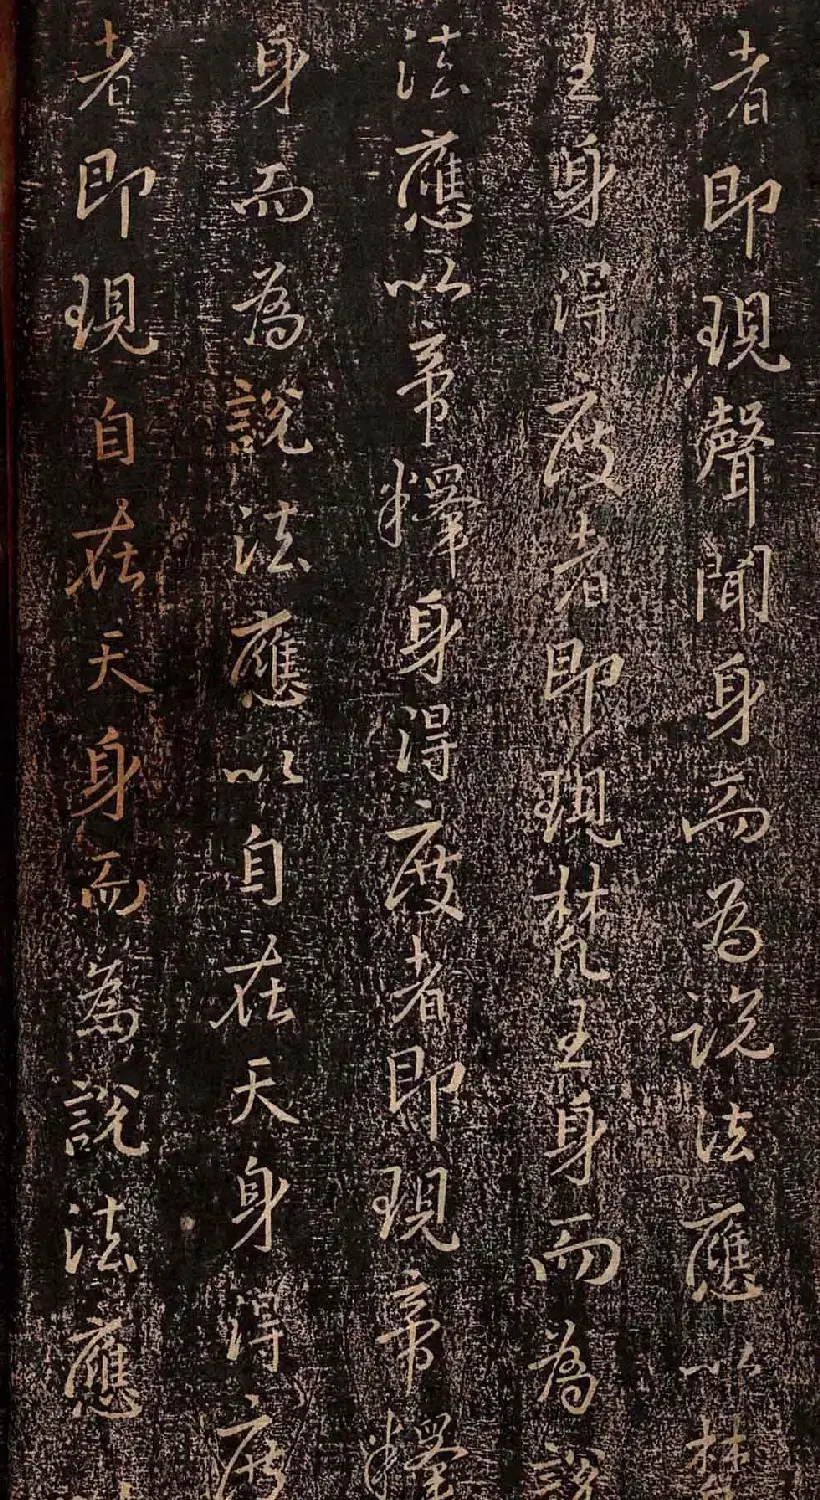 者即現聲聞身而為説法應以梵
王身得度者即現梵王身而為説
法應以帝釋身得度者即現帝釋
身而為說法應以自在天身得度
者即現自在天身而為說法應以